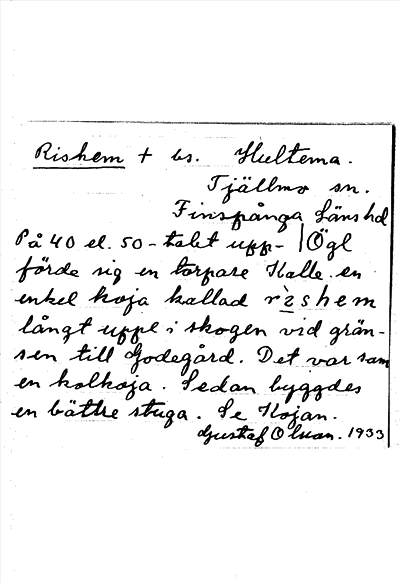 Rishem + bs. Hultema.
Tjällmo sn.
Finspånga Läns hd
På 40 el. 50-talet upp- | Ögl
förde sig en torpare Kalle en
enkel koja kallad rìshem
långt uppe i skogen vid grän-
sen till Godegård. Det var som
en kolkoja. Sedan byggdes
en bättre stuga. Se Kojan.
Gustaf Olson. 1933